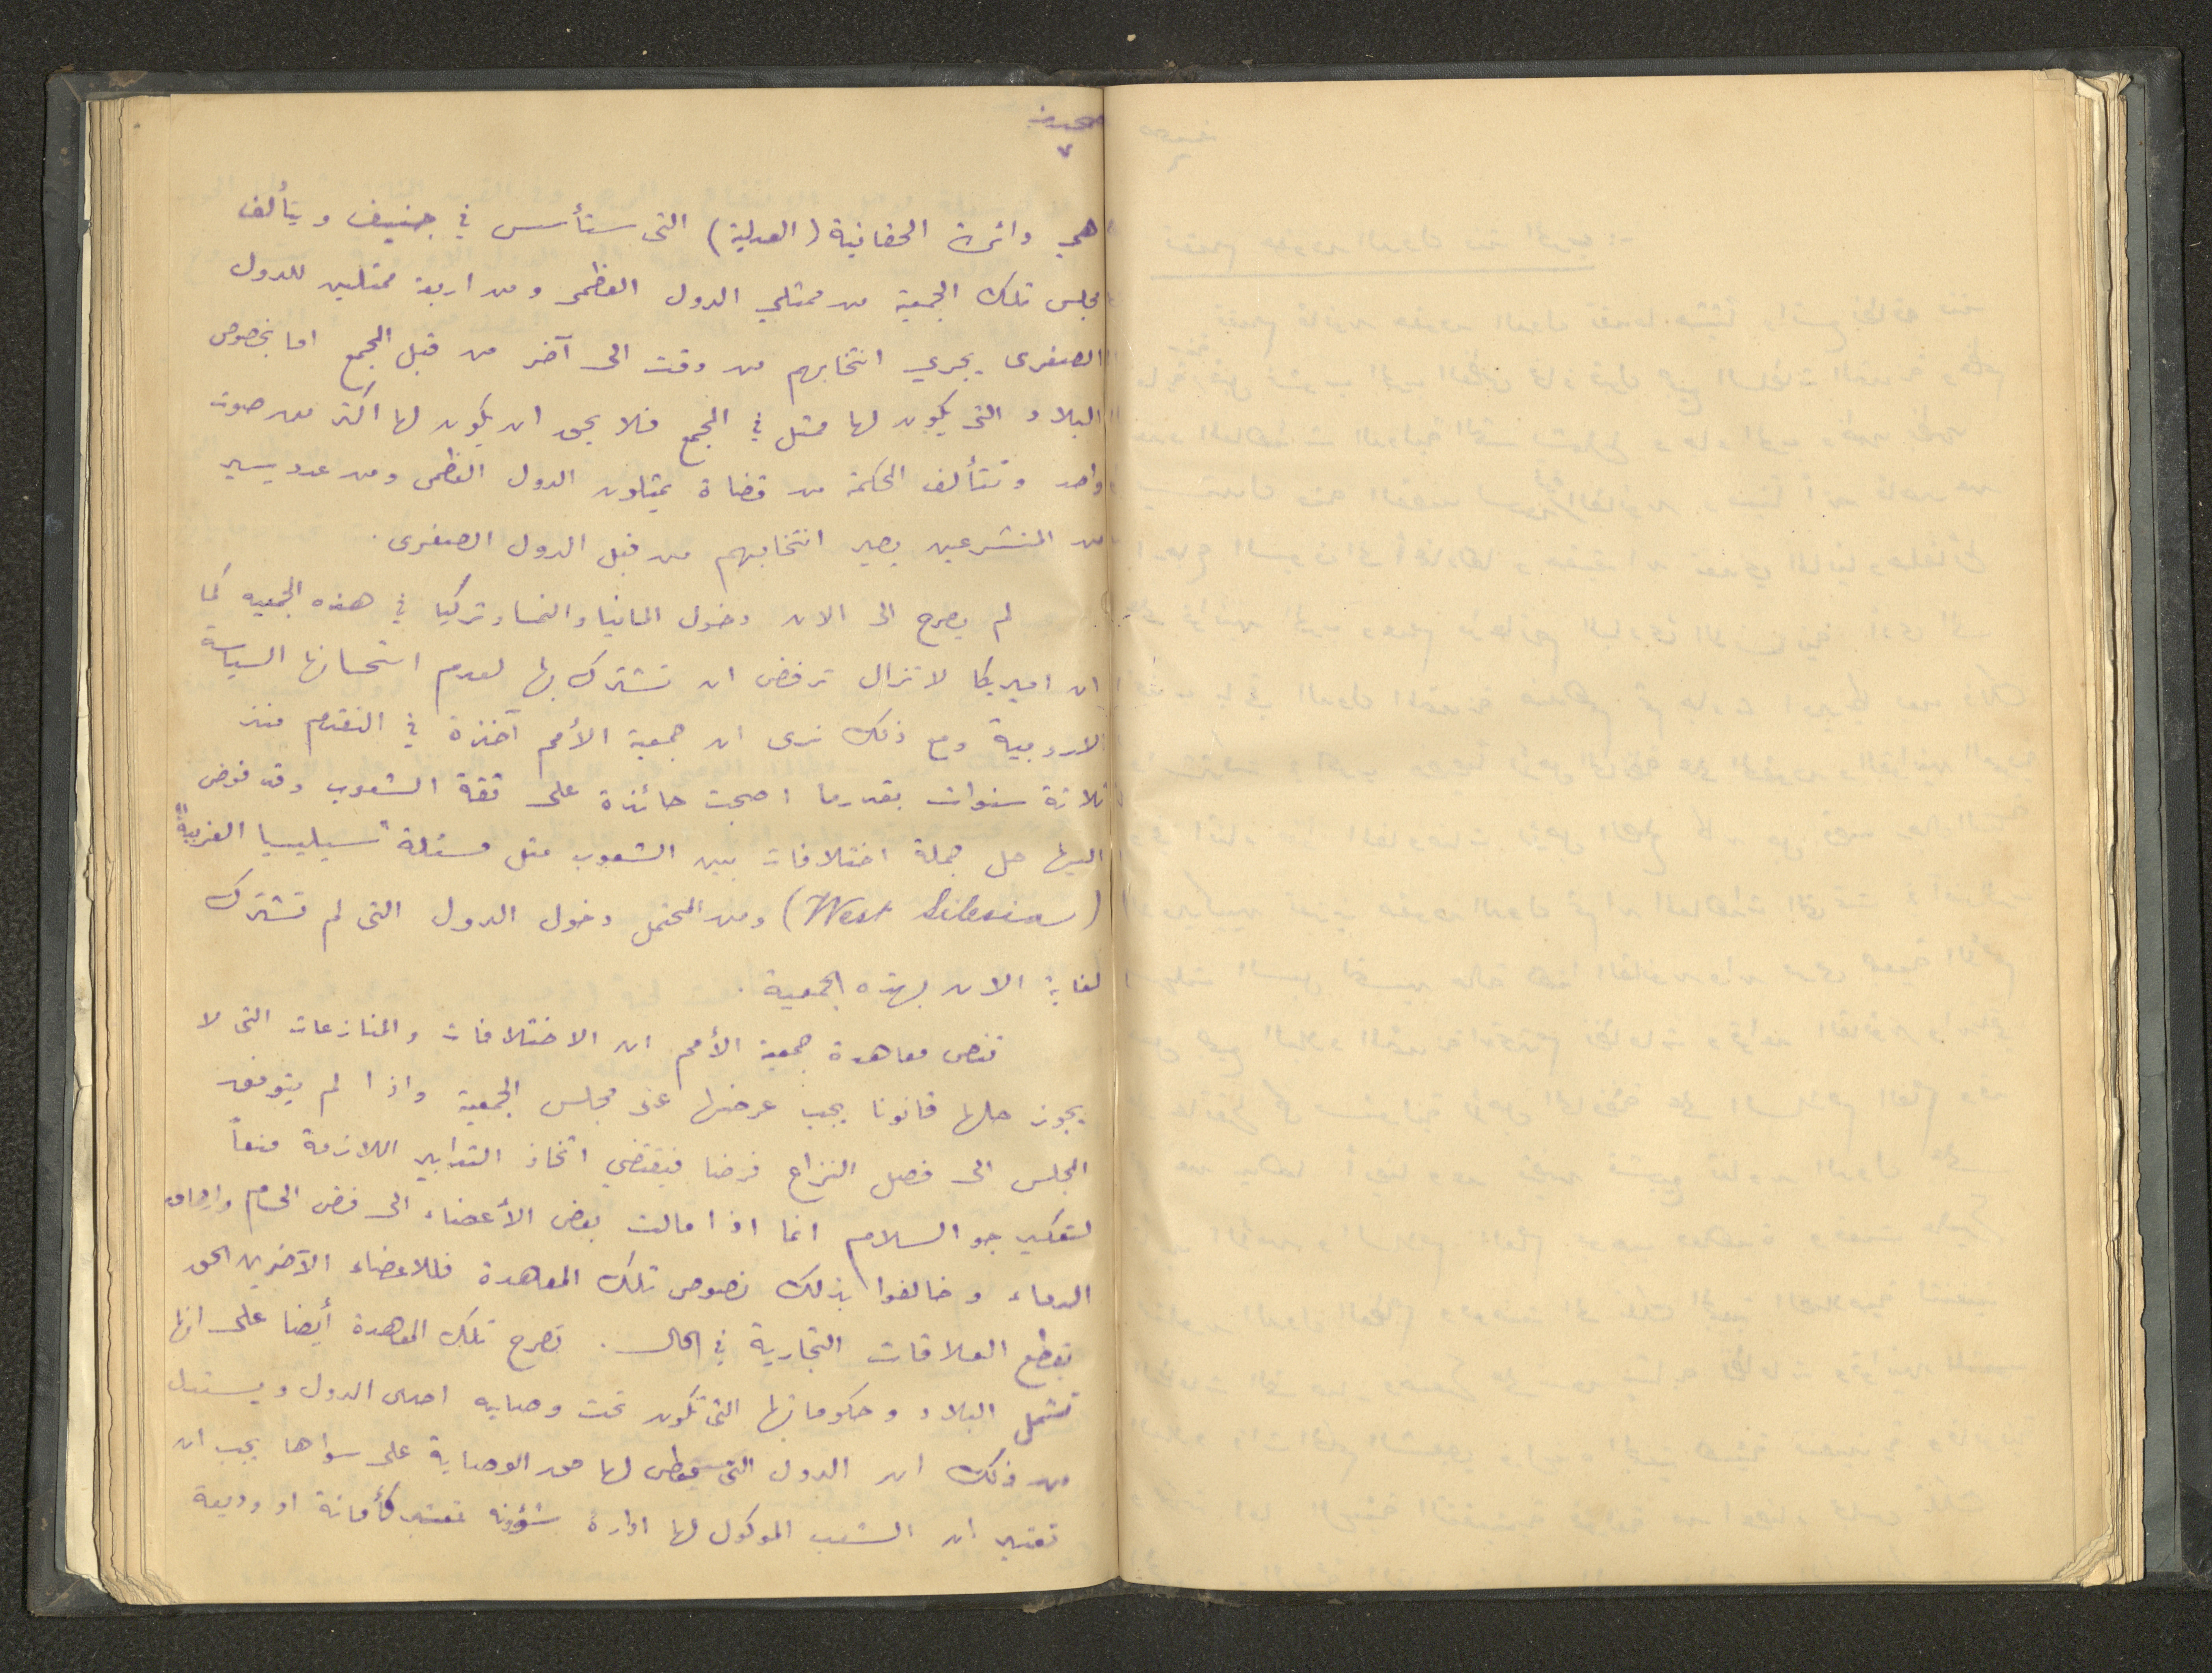 صحيفة
٧
هي دائرة الحقانية (العدلية) التى ستأسس في جنيف ويتألف
مجلس تلك الجمعية من ممثلي الدول العظمى ومن اربعة ممثلين للدول
الصغرى يجري انتخابهم من وقت الى آخر من قبل المجمع اما بخصوص
البلاد التى يكون لها ممثل في المجمع فلا يحق ان يكون لها اكثر من صوت
واحد وتتألف المحكمة من قضاة يمثلون الدول العظمى ومن عدد يسير
من المتشرعين يصير انتخابهم من قبل الدول الصغرى .
لم يصرح الى الان دخول المانيا والنمسا وتركيا في هذه الجمعيه كما
ان اميريكا لا تزال ترفض ان تشترك بها لعدم استحسانها السياسة
الاروبية ومع ذلك نرى ان جمعية الأمم آخذة في التقدم منذ
ثلاثة سنوات بقدر ما اصبحت حائزة على ثقة الشعوب وقد فوض
اليها حل جملة اختلافات بين الشعوب مثل مسئلة "سيليسيا الغربية"
(West Silesia) ومن المحتمل دخول الدول التى لم تشترك
لغاية الان بهذه الجمعية .
تنص معاهدة جمعية الأمم ان الاختلافات والمنازعات التى لا
يجوز حلها قانونا يجب عرضها على مجلس الجمعية واذا لم يتوفق
المجلس الى فصل النزاع فرضا فيقتضي اتخاذ التدابير اللازمة منعاً
لتعكير جو السلام انما اذا مالت بعض الأعضاء الى فض الحسام واهراق
الدماء وخالفوا بذلك نصوص تلك المعاهدة فللاعضاء الآخرين الحق
بقطع العلاقات التجارية في الحال . تصرح تلك المعاهدة أيضا على انها
تشمل البلاد وحكوماتها التى تكون تحت وصايه احدى الدول ويستدل
من ذلك ان الدول التى يعطى لها حق الوصاية على سواها يجب ان
تعتبر ان الشعب الموكول لها ادارة شؤونه كأمانة او وديعة